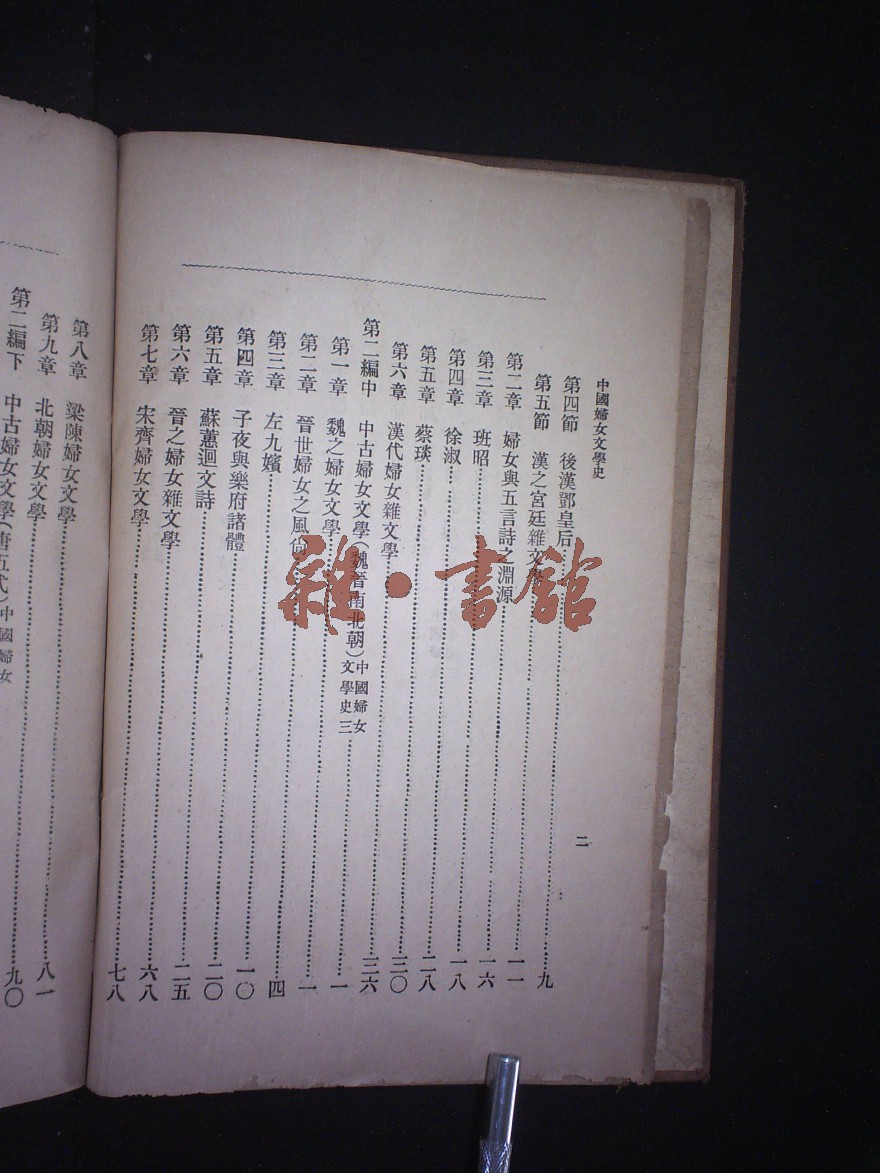 中國婦女文學史
二
第四節　後漢鄧皇后……九
第五節　漢之宮廷雜文學……一一
第二章　婦女與五言詩之淵源……一六
第三章　班昭……一八
第四章　徐淑……二八
第五章　蔡琰……三〇
第六章　漢代婦女雜文學……三六
第二編中　中古婦女文學(魏晉南北朝)中國婦女文學史三……一
第一章　魏之婦女文學……一
第二章　晉世婦女之風尚……四
第三章　左九嬪……一〇
第四章　子夜與樂府諸體……二〇
第五章　蘇蕙迴文詩……二五
第六章　晉之婦女雜文學……六八
第七章　宋齊婦女文學……七八
第八章　梁陳婦女文學……八一
第九章　北朝婦女文學……九〇
第二編下　中古婦女文學(唐五代)中國婦女
雜·書館